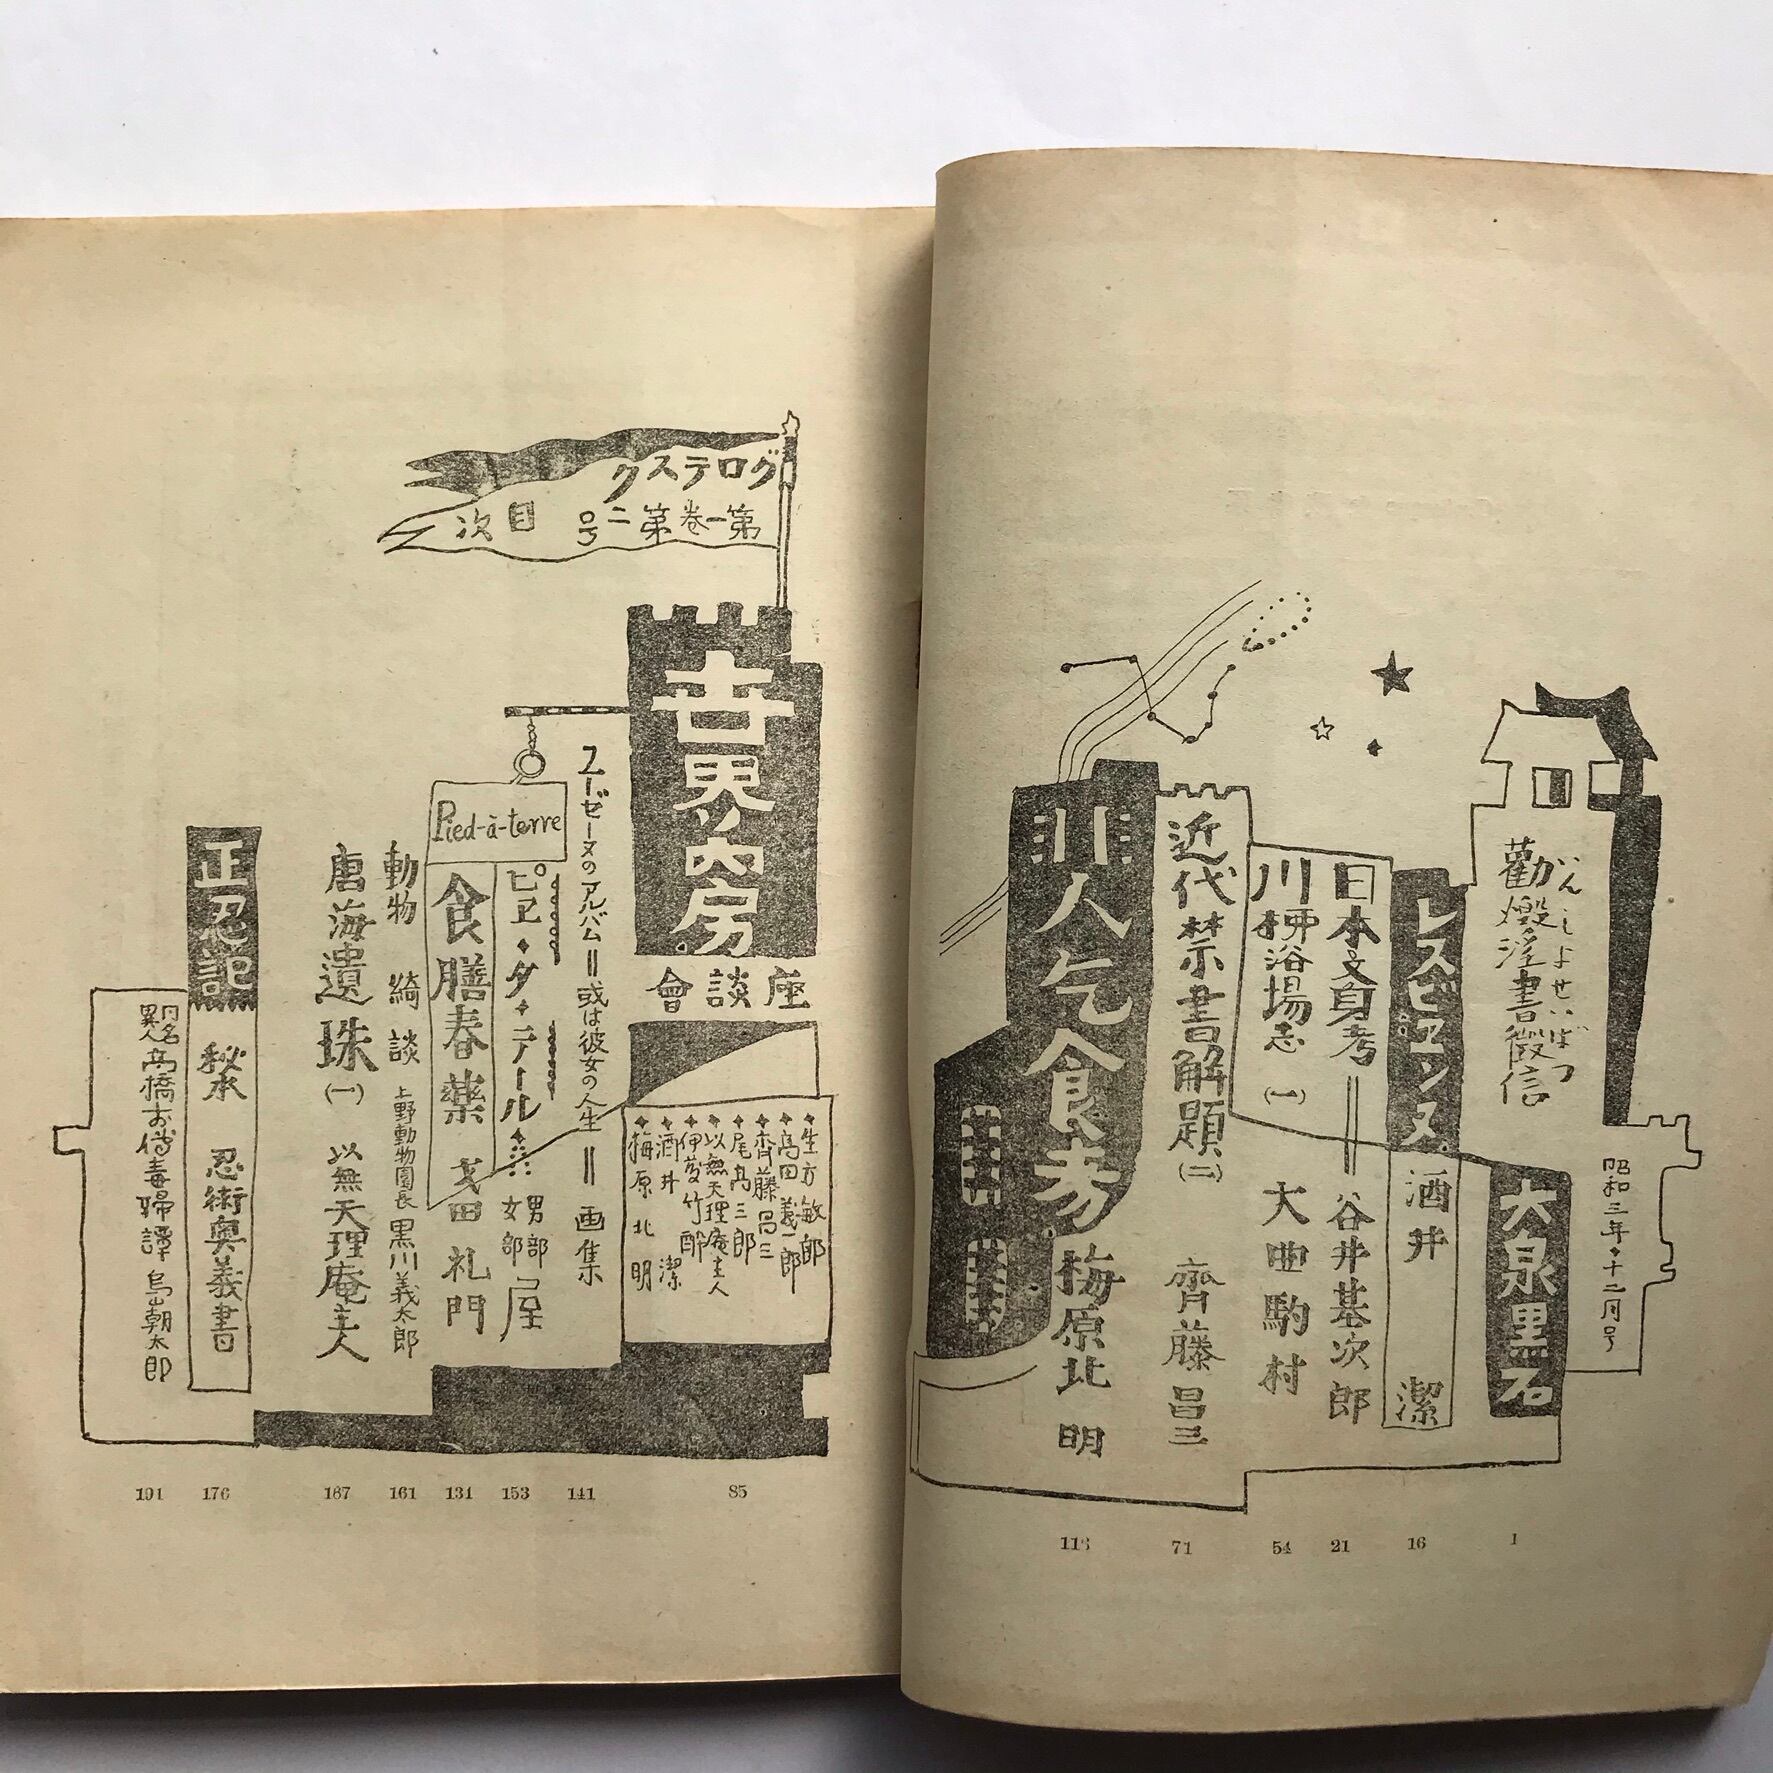 昭和三年・十二月号
げんしよせいばつ
勸燬淫書徵信
大泉黒石
レスビエンヌ
酒井 潔
日本文身考＝谷井基次郎
川柳浴場志(一) 大曲駒村
近代禁書解題(二) 齊藤昌三
非人乞食考
梅原北明
1
16
21
54
71
113
グロテスク
第一巻第二号 目次
世界ノ内房
座談會
生方敏郎
高田義一郎
齊藤昌三
尾高三郎
以無天理庵主人
伊藤竹酔
酒井 潔
梅原北明
ユーゼーヌのアルバム＝或は彼女の人生＝画集
Pied-à-terre
ピエ・タ・テール 男部 女部 屋
食膳春薬 戈田礼門
動物綺談 上野動物園長 黒川義太郎
唐海遺珠(一) 以無天理庵主人
正忍記
秘本 忍術奥義書
異名 高橋お傳毒婦譚
85
141
153
131
161
167
176
191